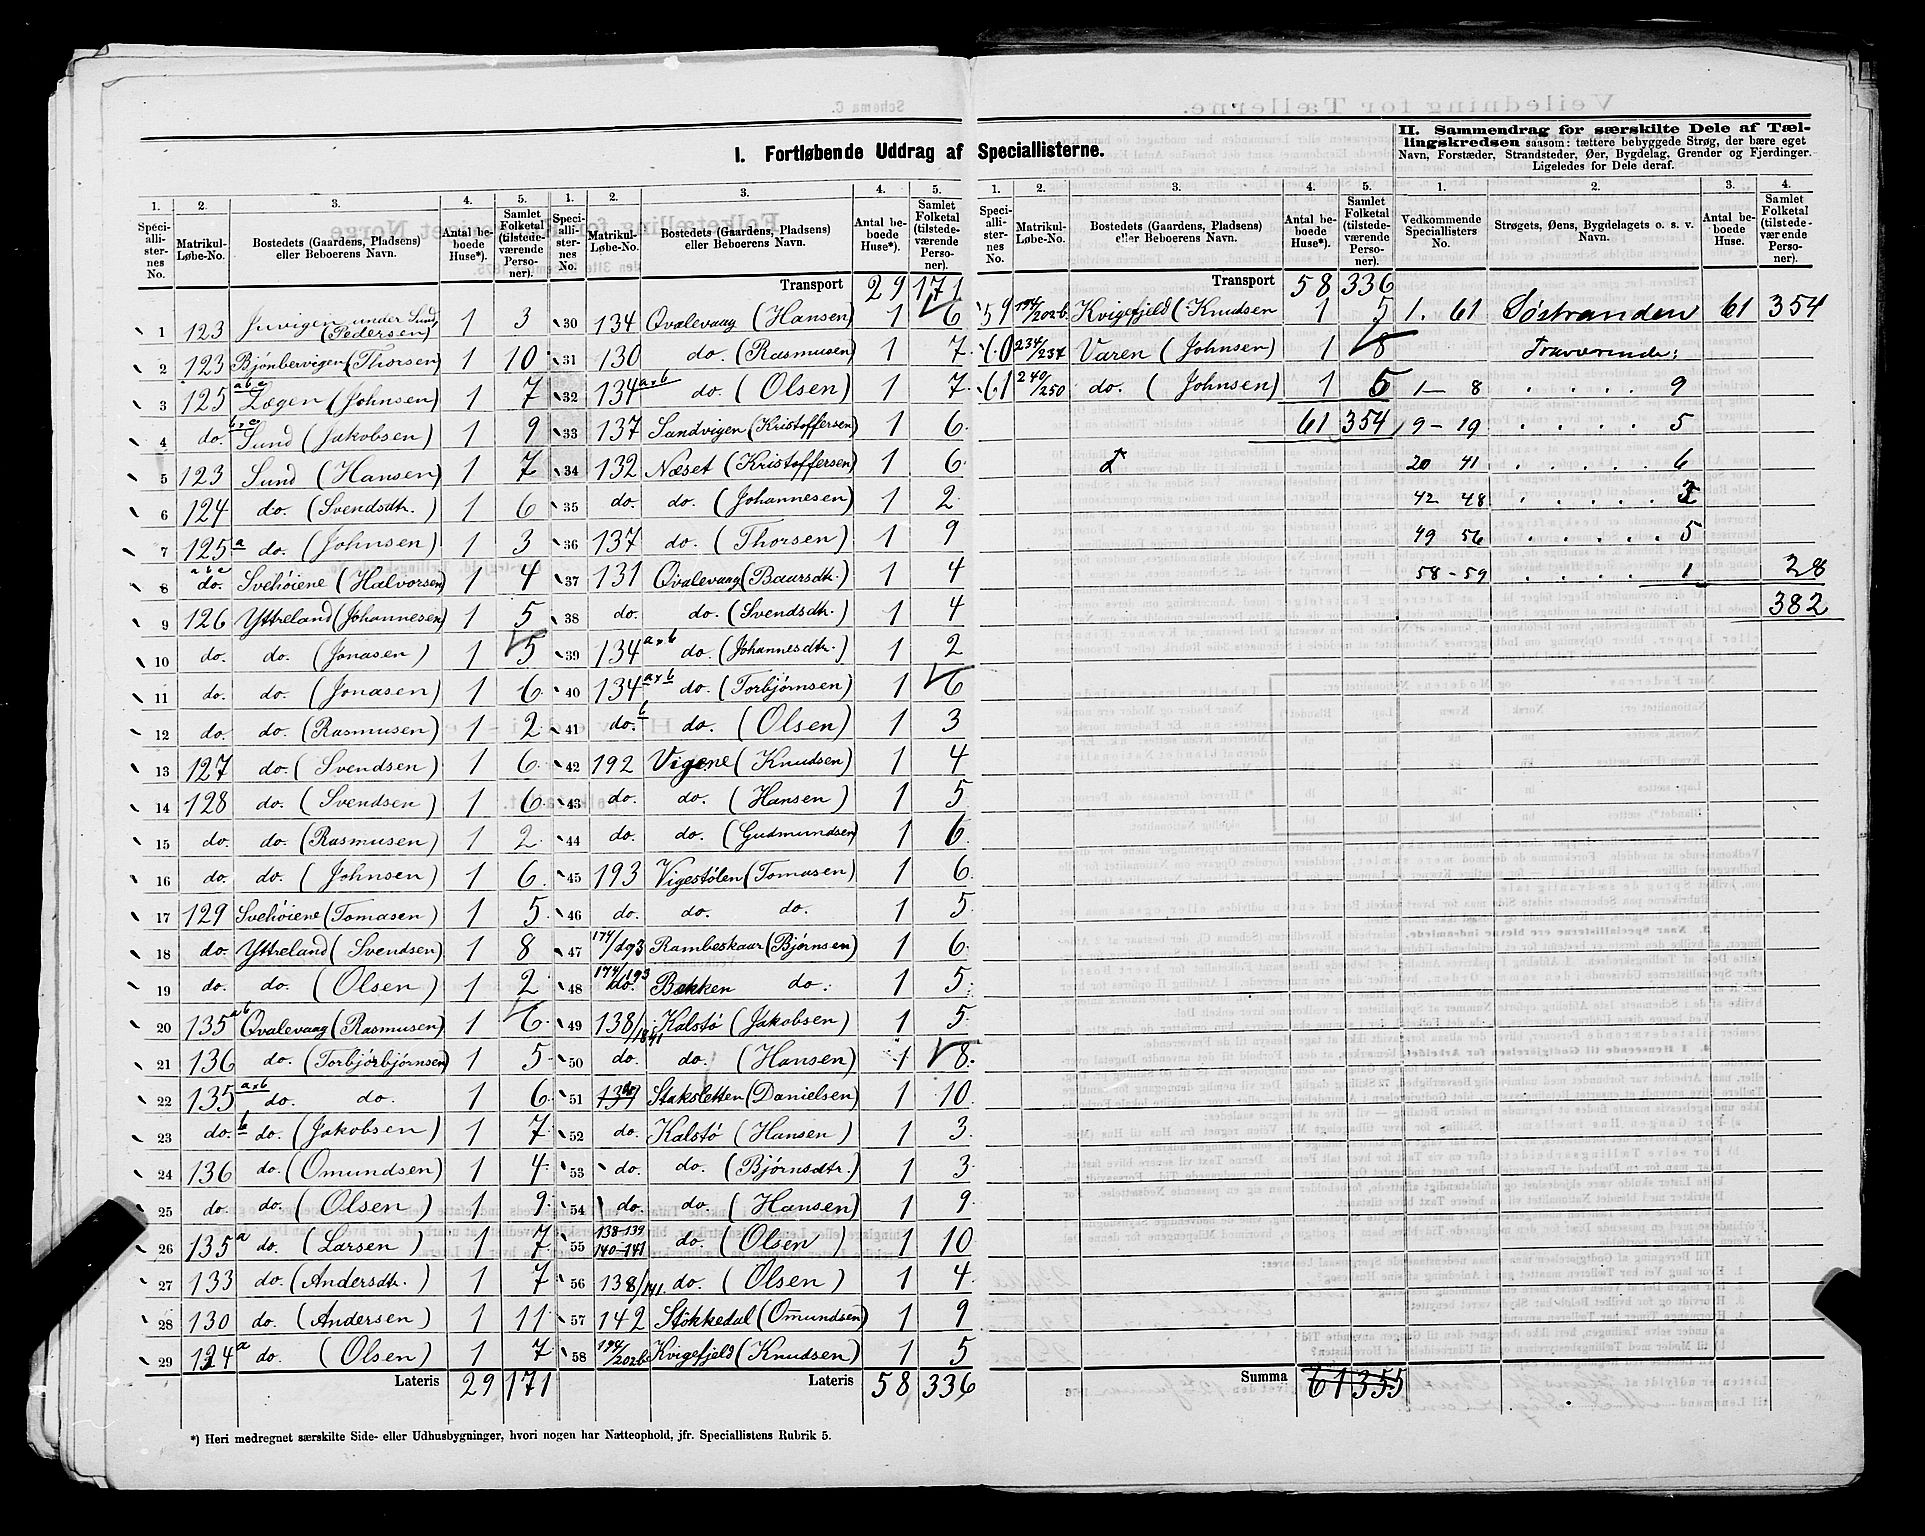 I. Fortløbende Uddrag af Speciallisterne.
1. 2. 3. 4. 5. 1. 2. 3. 4. 5.
Speciallisternes No. Matrikul-Løbe-No. Bostedets (Gaardens, Pladsens) eller Beboerens Navn. Antal beboede Huse*). Samlet Folketal (tilstedeværende Personer).
Transport 29 171
1 123 Juvigen under Sund (Pedersen) 1 3
2 123 Bjønbervigen (Thorsen) 1 10
3 125 abc Lægen (Johnsen) 1 7
4 do. b+c Sund (Jakobsen) 1 9
5 123 Sund (Hansen) 1 7
6 124 do. (Svendsdtr.) 1 6
7 125 a do. (Johnsen) 1 3
8 abc do. Svehøiene (Halvorsen) 1 4
9 126 Yttreland (Johannesen) 1 5
10 do. do. (Jonasen) 1 5
11 do. do. (Jonasen) 1 6
12 do. do. (Rasmusen) 1 2
13 127 do. (Svendsen) 1 6
14 128 do. (Svendsen) 1 6
15 do. do. (Rasmusen) 1 2
16 do. do. (Johnsen) 1 6
17 129 Svehøiene (Tomasen) 1 5
18 do. Yttreland (Svendsen) 1 8
19 do. do. (Olsen) 1 2
20 135 ab Qvalevaag (Rasmusen) 1 6
21 136 do. (Torbjørbjørnsen) 1 5
22 135 a+b do. do. 1 6
23 do. b do. (Jakobsen) 1 7
24 136 do. (Omundsen) 1 4
25 do. do. (Olsen) 1 9
26 135 a do. (Larsen) 1 7
27 133 do. (Andersdtr.) 1 7
28 130 do. (Andersen) 1 11
29 134 a do. (Olsen) 1 7
Lateris 29 171
30 134 Qvalevaag (Hansen) 1 6
31 130 do. (Rasmusen) 1 7
32 134 a+b do. (Olsen) 1 7
33 137 Sandvigen (Kristoffersen) 1 6
34 132 Næset (Kristoffersen) 1 6
35 do. do. (Johannesen) 1 2
36 137 do. (Thorsen) 1 9
37 131 Qvalevaag (Baarsdtr.) 1 4
38 do. do. (Svendsdtr.) 1 4
39 134 a+b do. (Johannesdtr.) 1 2
40 134 a+b do. (Torbjørnsen) 1 6
41 do. b do. (Olsen) 1 3
42 192 Vigene (Knudsen) 1 4
43 do. do. (Hansen) 1 5
44 do. do. (Gudmundsen) 1 6
45 193 Vigestølen (Tomasen) 1 6
46 do. do. do. 1 5
47 174/193 Rambeskaar (Bjørnsen) 1 6
48 174/193 do. Bakken do. 1 5
49 138/141 Kalstø (Jakobsen) 1 5
50 do. do. (Hansen) 1 8
51 139 do Staksletten (Danielsen) 1 10
52 do. Kalstø (Hansen) 1 3
53 do. do. (Bjørnsdtr.) 1 3
54 do do. (Hansen) 1 9
55 138-139 140-141 do. (Olsen) 1 10
56 138/141. do. (Olsen) 1 4
57 142 Stokkedal (Omundsen) 1 9
58 194/202b Kvigefjeld (Knudsen) 1 5
Lateris 58 336
*) Heri medregnet særskilte Side- eller Udhusbygninger, hvori nogen har Natteophold, jfr. Speciallistens Rubrik 5.
1. 2. 3. 4. 5.
Speciallisternes No. Matrikul-Løbe-No. Bostedets (Gaardens, Pladsens) eller Beboerens Navn. Antal beboede Huse*). Samlet Folketal (tilstedeværende Personer).
Transport 58 336
59 194/202b. Kvigefjeld (Knudsen 1 5
60 234/237 Varen (Johnsen) 1 8
61 240/250 do. (Johnsen) 1 5
61 354
Summa 61 355
II. Sammendrag for særskilte Dele af Tællingskredsen saasom: tættere bebyggede Strøg, der bære eget
Navn, Forstæder, Strandsteder, Øer, Bygdelag, Grender og Fjerdinger.
Ligeledes for Dele deraf.
1. 2. 3. 4.
Vedkommende Speciallisters No. Strøgets, Øens, Bygdelagets o. s. v. Navn. Antal beboede Huse. Samlet Folketal (tilstedeværende Personer).
1. 61 Søstranden 61 354
Fraværende:
1 – 8 . . . . 9
9 – 19 . . . . . 5
20 41 . . . . . 6
42 48 . . . . .
49 56 . . . . . 5
58 - 59 . . . . 1 28
382